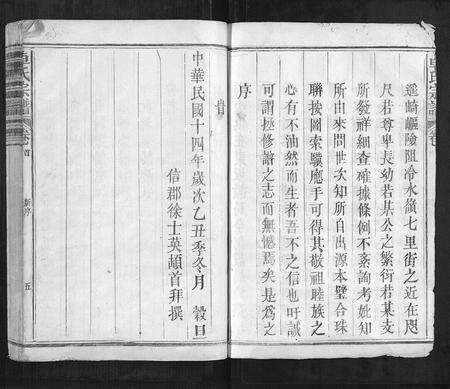 遙崎嶇險阻冷水嶺七里街之近在咫
尺若尊卑長幼若某公之繁衍若某支
所發祥細查確據條例不紊詢考妣知
所由來問世次知所自出源本璧合珠
聯按圖索驥應手可得其敬祖睦族之
心有不油然而生者吾不之信也吁誠
可謂極修譜之志而無憾焉矣是為之
序
旹
中華民國十四年歲次乙丑季冬月 穀旦
信郡徐士英頡首拜撰
氏宗譜
卷首
新序
五